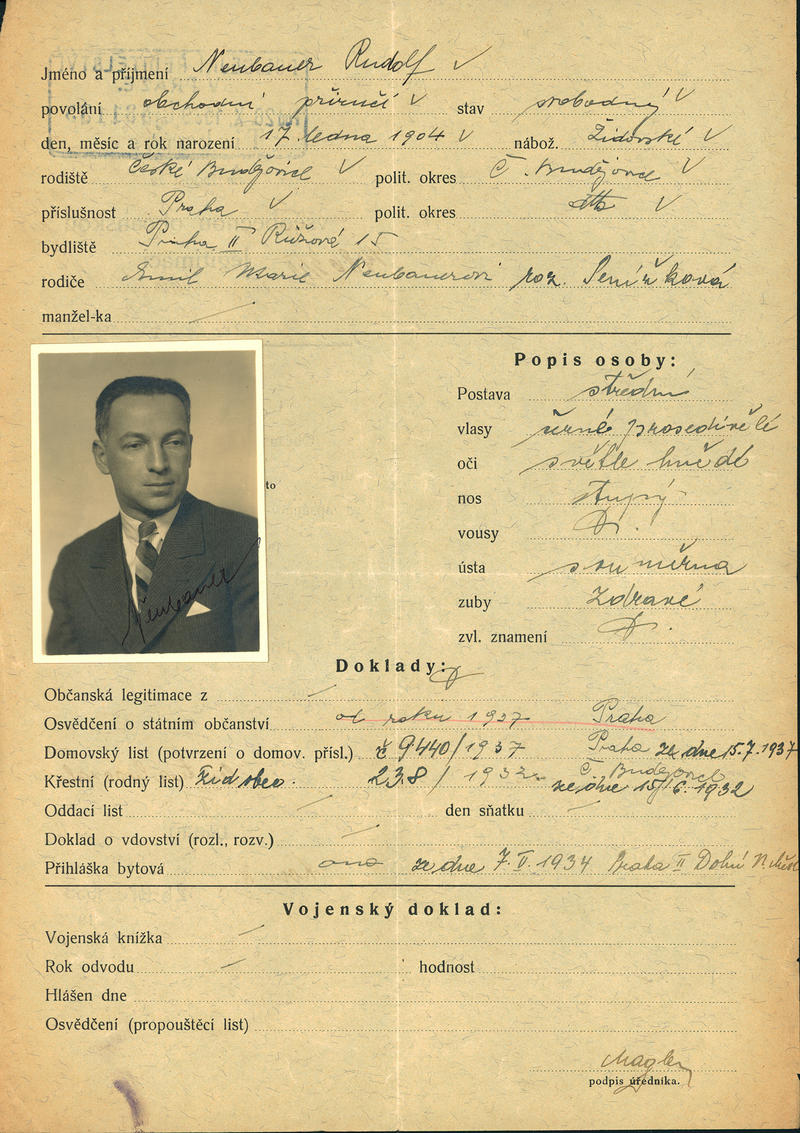 Jméno a příjmení Neubauer Rudolf √
povolání obchodní příručí √ stav svobodný √
den, měsíc a rok narození 17. ledna 1904 √ nábož. Židovské √
rodiště České Budějovice √ polit. okres Č. Budějovice √
příslušnost Praha √ polit. okres √
bydliště Praha II Růžová 15
rodiče Emil Marie Neubauerovi roz.
manžel-ka
Popis osoby:
Postava střední
vlasy černé prosedivělé
oči světle hnědé
nos stupý
to
vousy
ústa souměrná
zuby zdravé
zvl. znamení
Neubauer
Doklady:
Občanská legitimace z
Osvědčení o státním občanství od roku 1937 Praha
Domovský list (potvrzení o domov. přísl.) č 9440/1937 Praha ze dne 15.7.1937
Křestní (rodný list) 238/1932 Č. Budějovice ze dne 15/6.1932
Oddací list den sňatku
Doklad o vdovství (rozl., rozv.)
Přihláška bytová ano ze dne 7.V.1934 Praha II Dolní
Vojenský doklad:
Vojenská knížka
Rok odvodu hodnost
Hlášen dne
Osvědčení (propouštěcí list)
podpis úředníka.